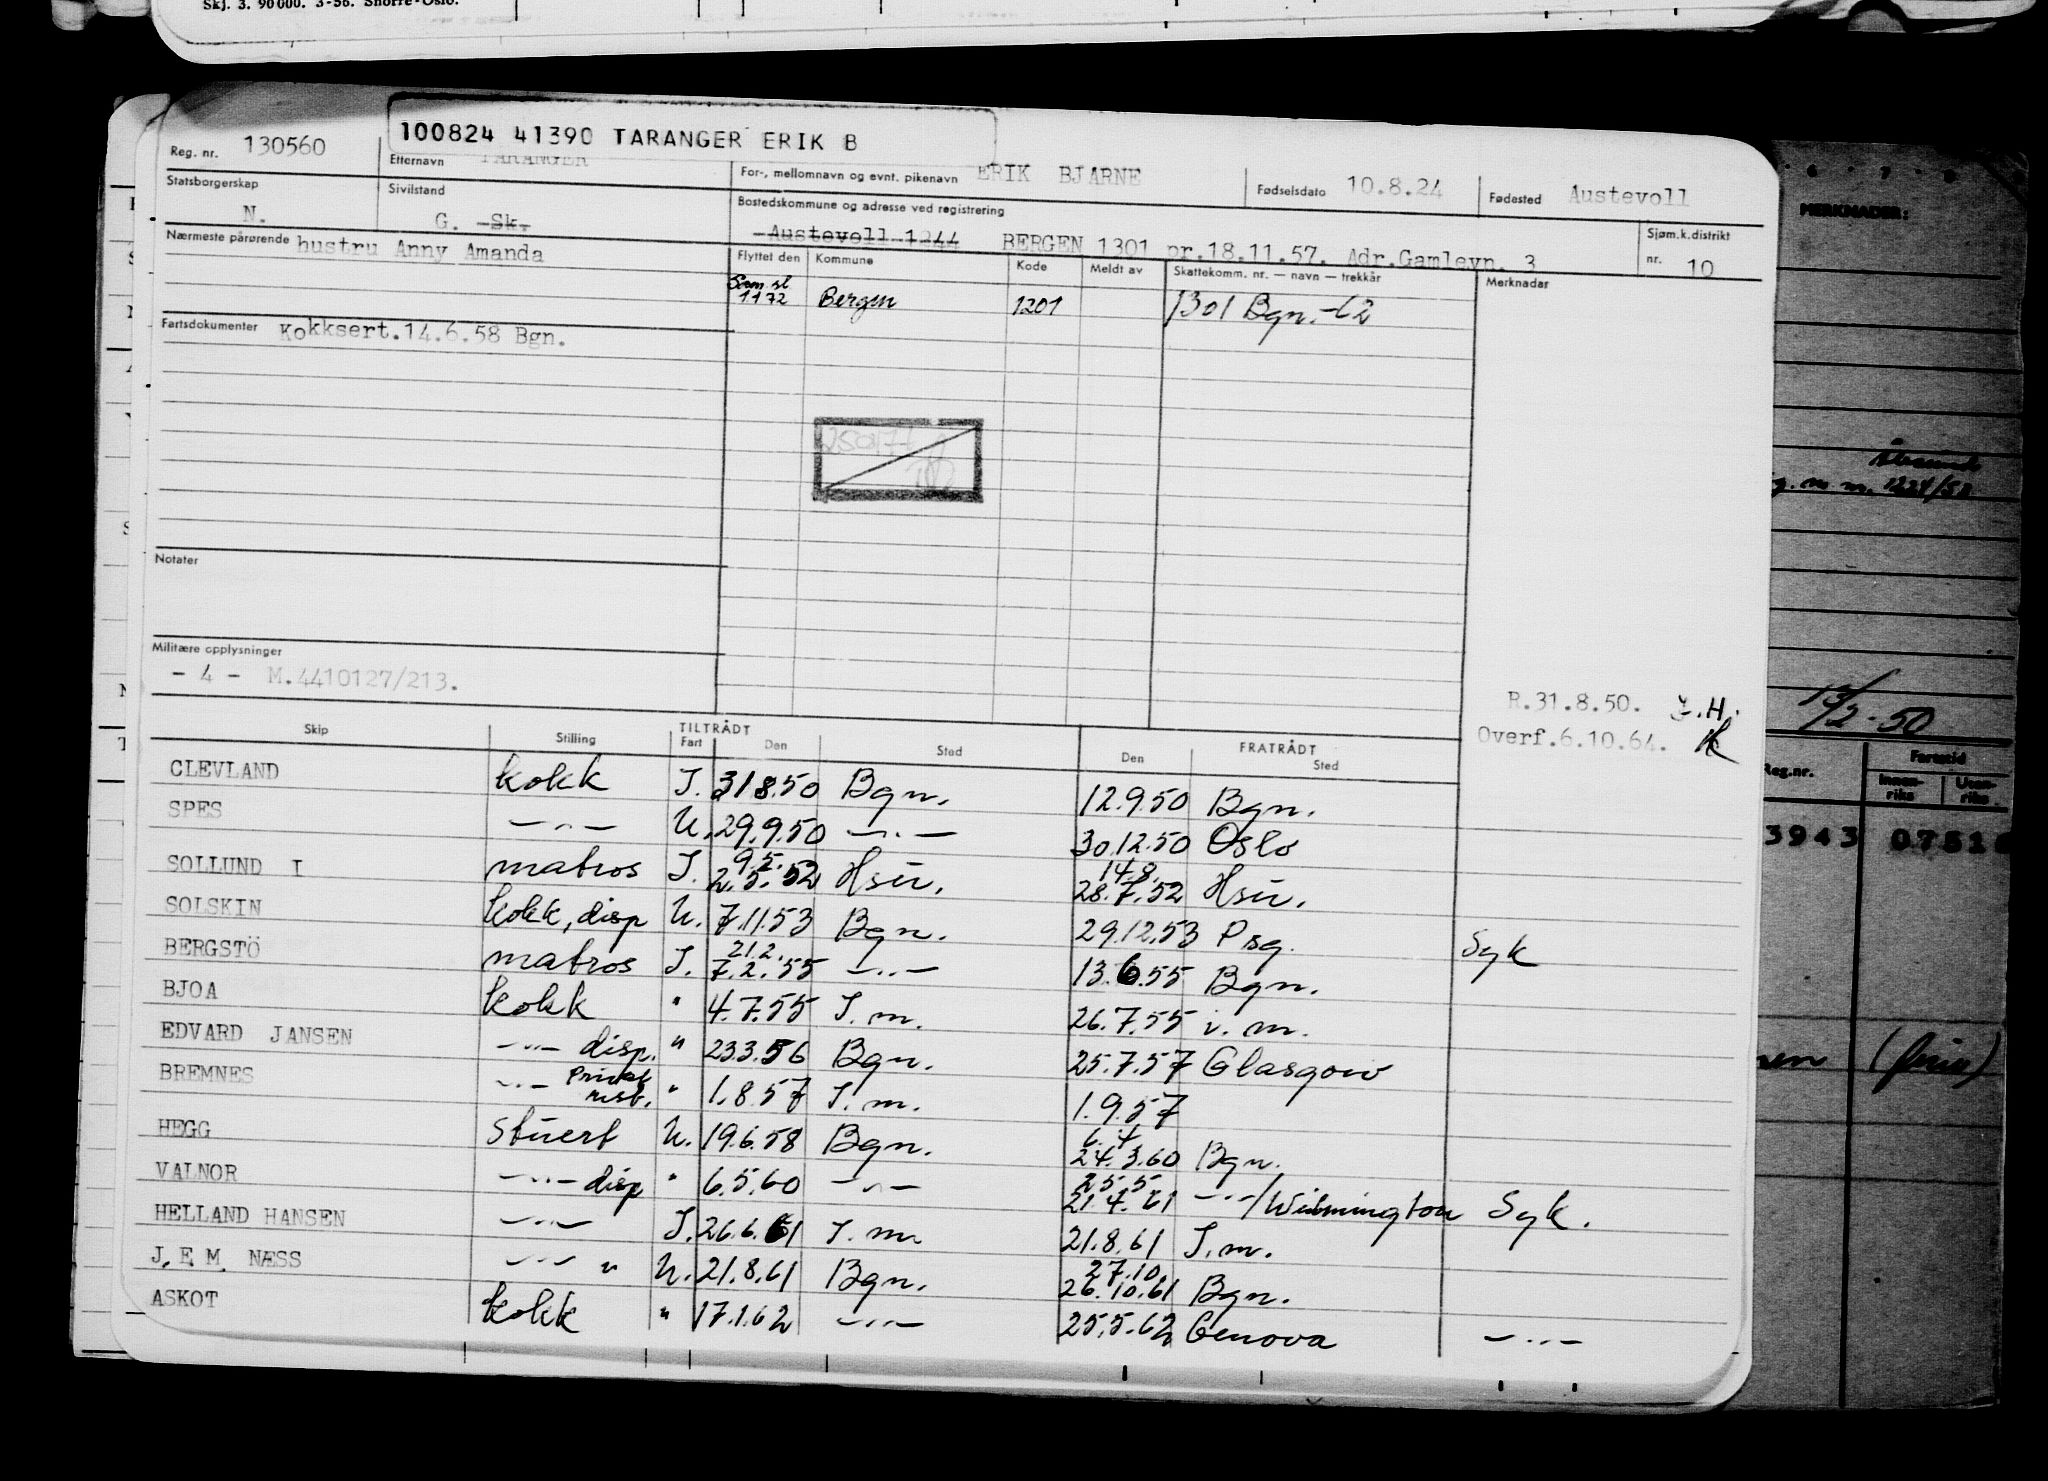 Skj. 3. 90000. 3-56. Snorre-Oslo.
100824 41390 TARANGER ERIK B
Reg. nr. 130560 Etternavn TARANGER For-, mellomnavn og evnt. pikenavn ERIK BJARNE Fødselsdato 10.8.24 Fødested Austevoll
Statsborgerskap N. Sivilstand G. Sk. Bostedskommune og adresse ved registrering Austevoll 1244 BERGEN 1301 pr.18.11.57. Adr.Gamlevn. 3 Sjøm.k.distrikt nr. 10
Nærmeste pårørende hustru Anny Amanda
Flyttet den Kommune Kode Meldt av Skattekomm. nr. — navn — trekkår Merknadar
1172 Bergen 1201 1301 Bgn.-62
Fartsdokumenter Kokksert.14.6.58 Bgn.
Notater
Militære opplysninger
- 4 - M.4410127/213.
R.31.8.50. J.H.
Overf.6.10.64.
Skip Stilling TILTRÅDT Fart Den Sted FRATRÅDT Den Sted
CLEVLAND kokk I. 31 8.50 Bgn. 12.9.50 Bgn.
SPES —"— U. 29.9.50 —"— 30.12.50 Oslo
SOLLUND I matros I. 9.5. 2.5.52 Hsu. 14.8. 28.7.52 Hsu.
SOLSKIN kokk, disp U. 7.11.53 Bgn. 29.12.53 Psg. Syk
BERGSTÖ matros I. 21.2. 7.2.55 —"— 13.6.55 Bgn.
BJOA kokk " 4.7.55 I.m. 26.7.55 i.m.
EDVARD JANSEN —"— disp. " 23.3.56 Bgn. 25.7.57 Glasgow
BREMNES —"— Privat " 1.8.57 I.m. 1.9.57
HEGG stuert U. 19.6.58 Bgn. 6.4 24.3.60 Bgn.
VALNOR —"— disp " 6.5.60 —"— 25.5. 21.4.61 —"—/Wilmington Syk.
HELLAND HANSEN —"— I. 26.6.61 I.m. 21.8.61 I.m.
J. E M. NÆSS —"— " U. 21.8.61 Bgn. 27.10. 26.10.61 Bgn.
ASKOT kokk " 17.1.62 —"— 25.5.62 Genova —"—
6 · 7 · 8
MERKNADER:
1224/50
12/2-50
Reg.nr. Fartstid
Innenriks Utenriks
3943 0751